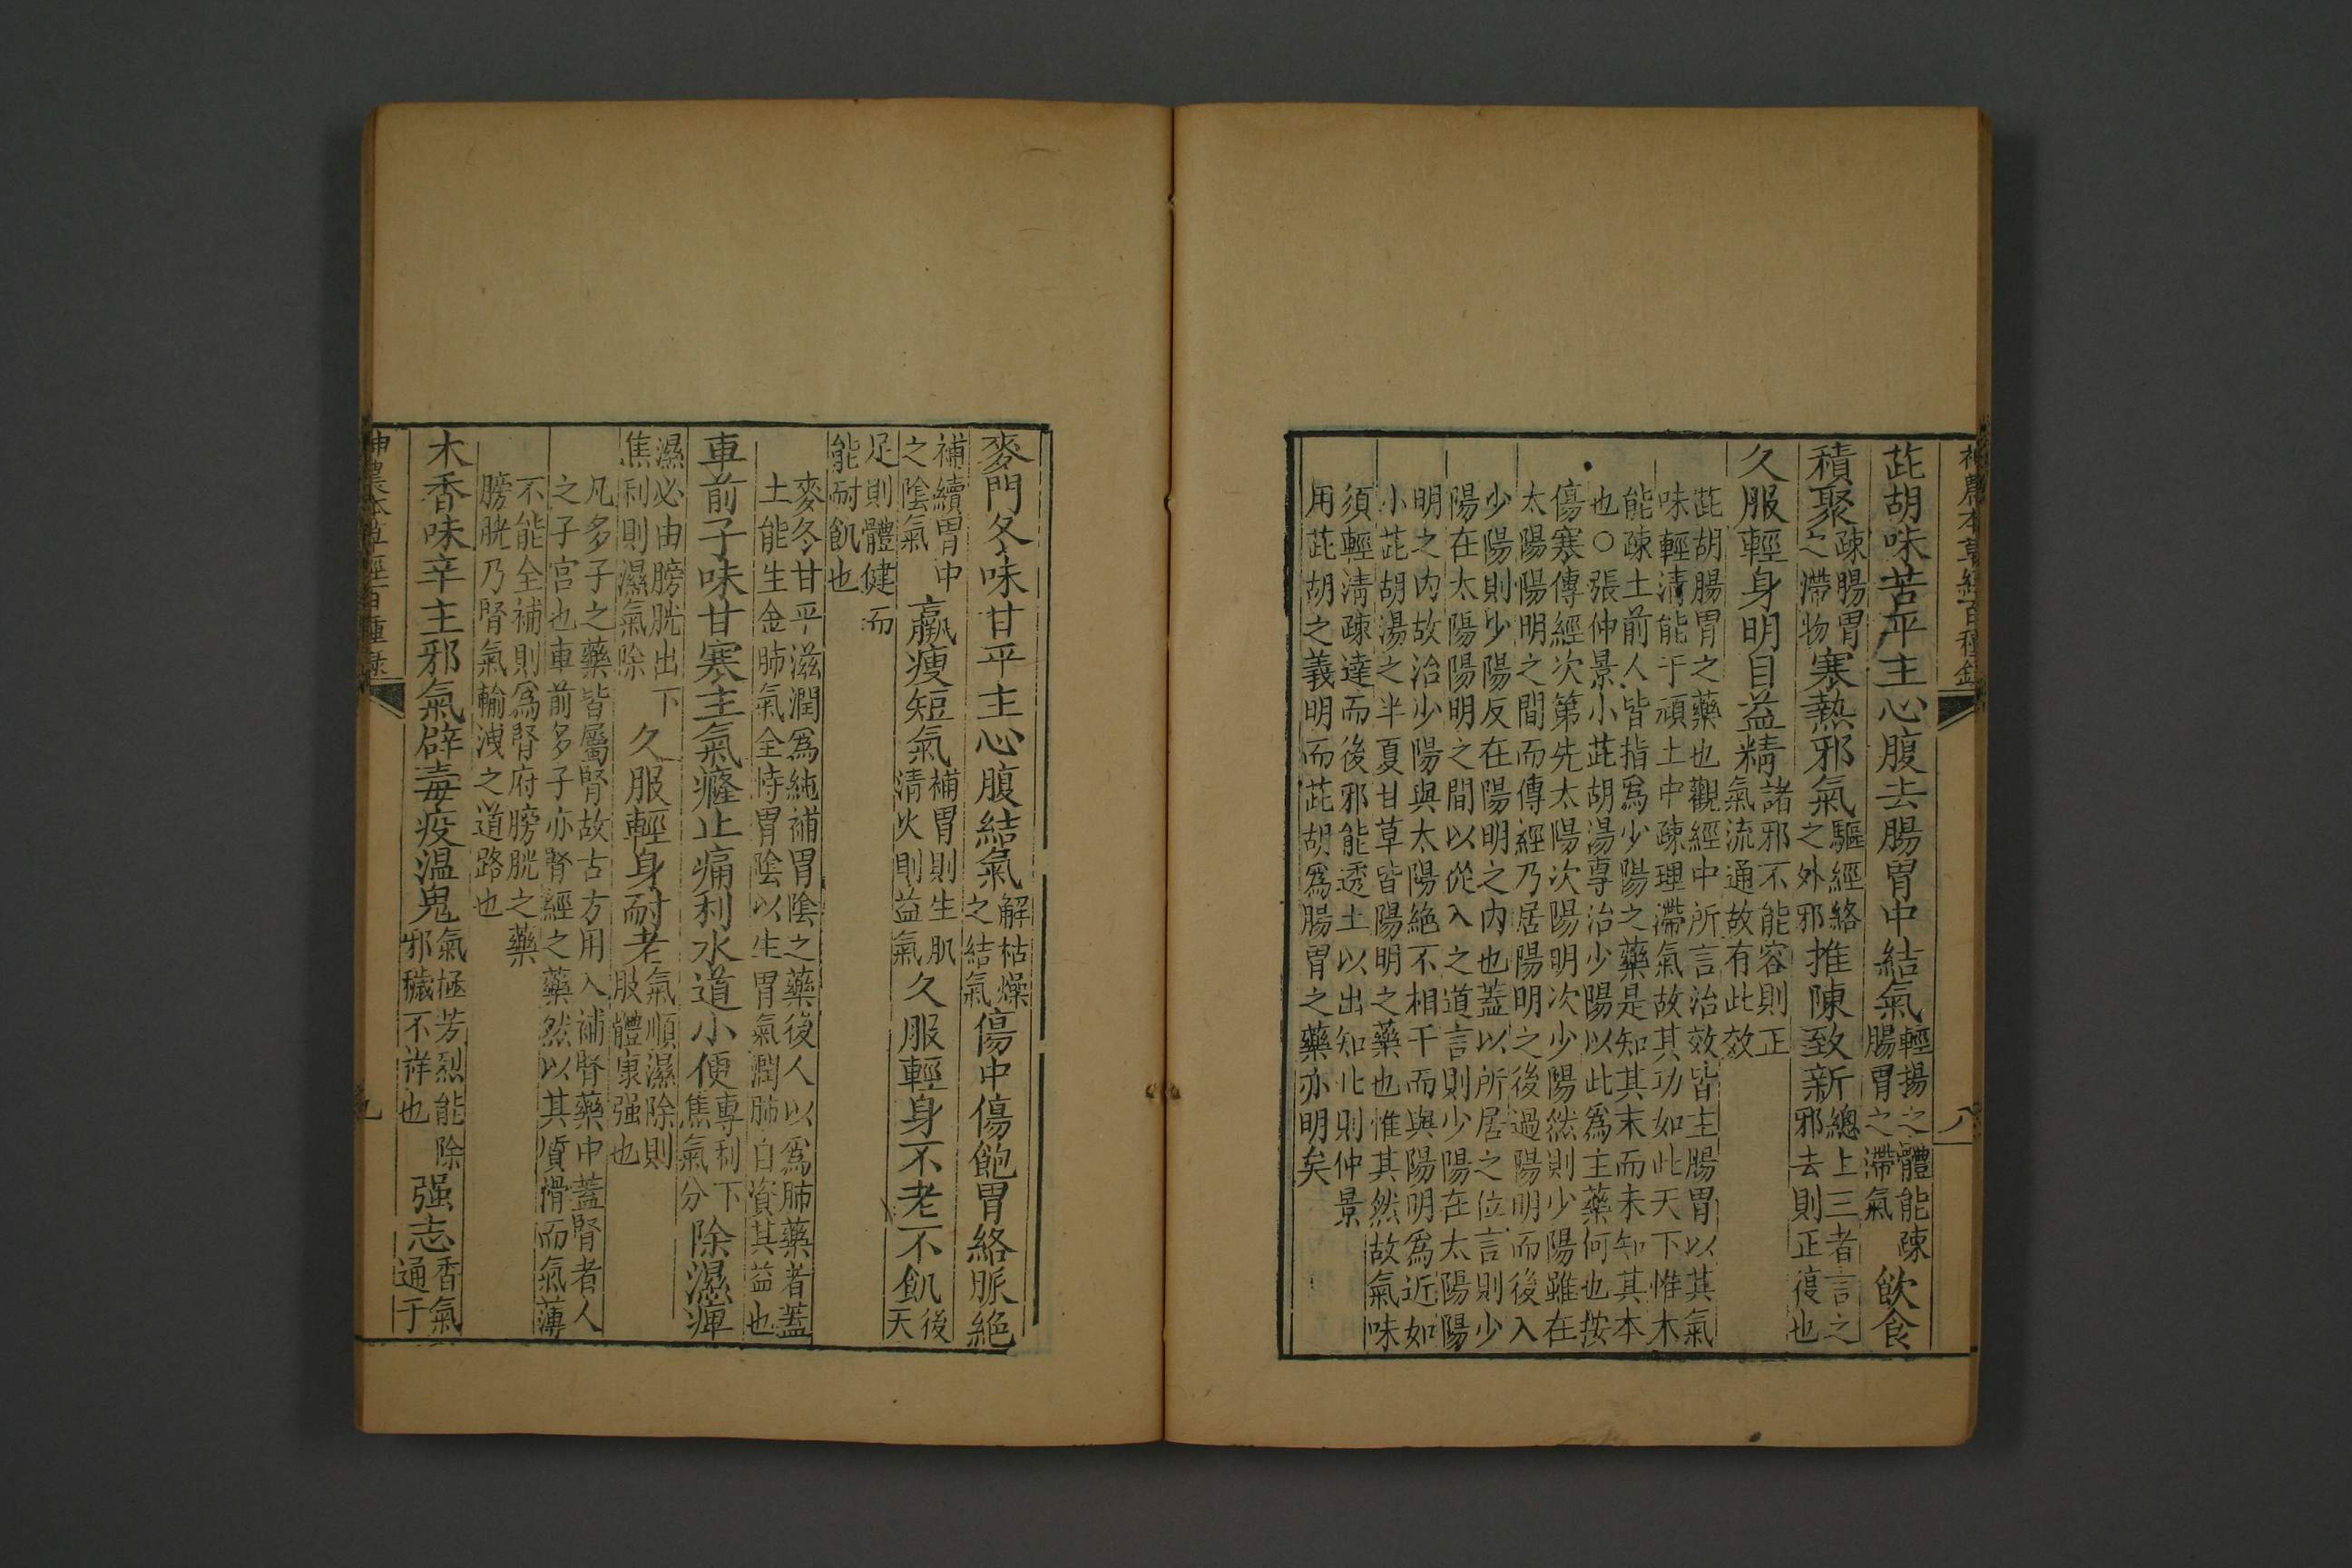 神農本草經百種錄
八
茈胡味苦平主心腹去腸胃中結氣輕揚之體能疎腸胃之滯氣飲食
積聚疎腸胃之滯物寒熱邪氣驅經絡之外邪推陳致新總上三者言之邪去則正復也
久服輕身明目益精諸邪不能容則正氣流通故有此效
茈胡腸胃之藥也觀經中所言治效皆主腸胃以其氣
味輕清能于頑土中疎理滯氣故其功如此天下惟木
能疎土前人皆指為少陽之藥是知其末而未知其本
也○張仲景小茈胡湯專治少陽以此為主藥何也按
傷寒傳經次第先太陽次陽明次少陽然則少陽雖在
太陽陽明之間而傳經乃居陽明之後過陽明而後入
少陽則少陽反在陽明之內也蓋以所居之位言則少
陽在太陽陽明之間以從入之道言則少陽在太陽陽
明之內故治少陽與太陽絕不相干而與陽明為近如
小茈胡湯之半夏甘草皆陽明之藥也惟其然故氣味
須輕淸疎達而後邪能透土以出知此則仲景
用茈胡之義明而茈胡爲腸胃之藥亦明矣
麥門冬味甘平主心腹結氣解枯燥之結氣傷中傷飽胃絡脈絕
補續胃中之陰氣羸瘦短氣補胃則生肌淸火則益氣久服輕身不老不飢後天
足則體健而能耐飢也
麥冬甘平滋潤爲純補胃陰之藥後人以爲肺藥者蓋
土能生金肺氣全恃胃陰以生胃氣潤肺自資其益也
車前子味甘寒主氣癃止痛利水道小便專利下焦氣分除濕痺
濕必由膀胱出下焦利則濕氣除久服輕身耐老氣順濕除則肢體康强也
凡多子之藥皆屬腎故古方用入補腎藥中蓋腎者人
之子宮也車前多子亦腎經之藥然以其質滑而氣薄
不能全補則爲腎府膀胱之藥
膀胱乃腎氣輸洩之道路也
木香味辛主邪氣辟毒疫温鬼氣極芳烈能除邪穢不祥也强志香氣通于
神農本草經百種錄
九